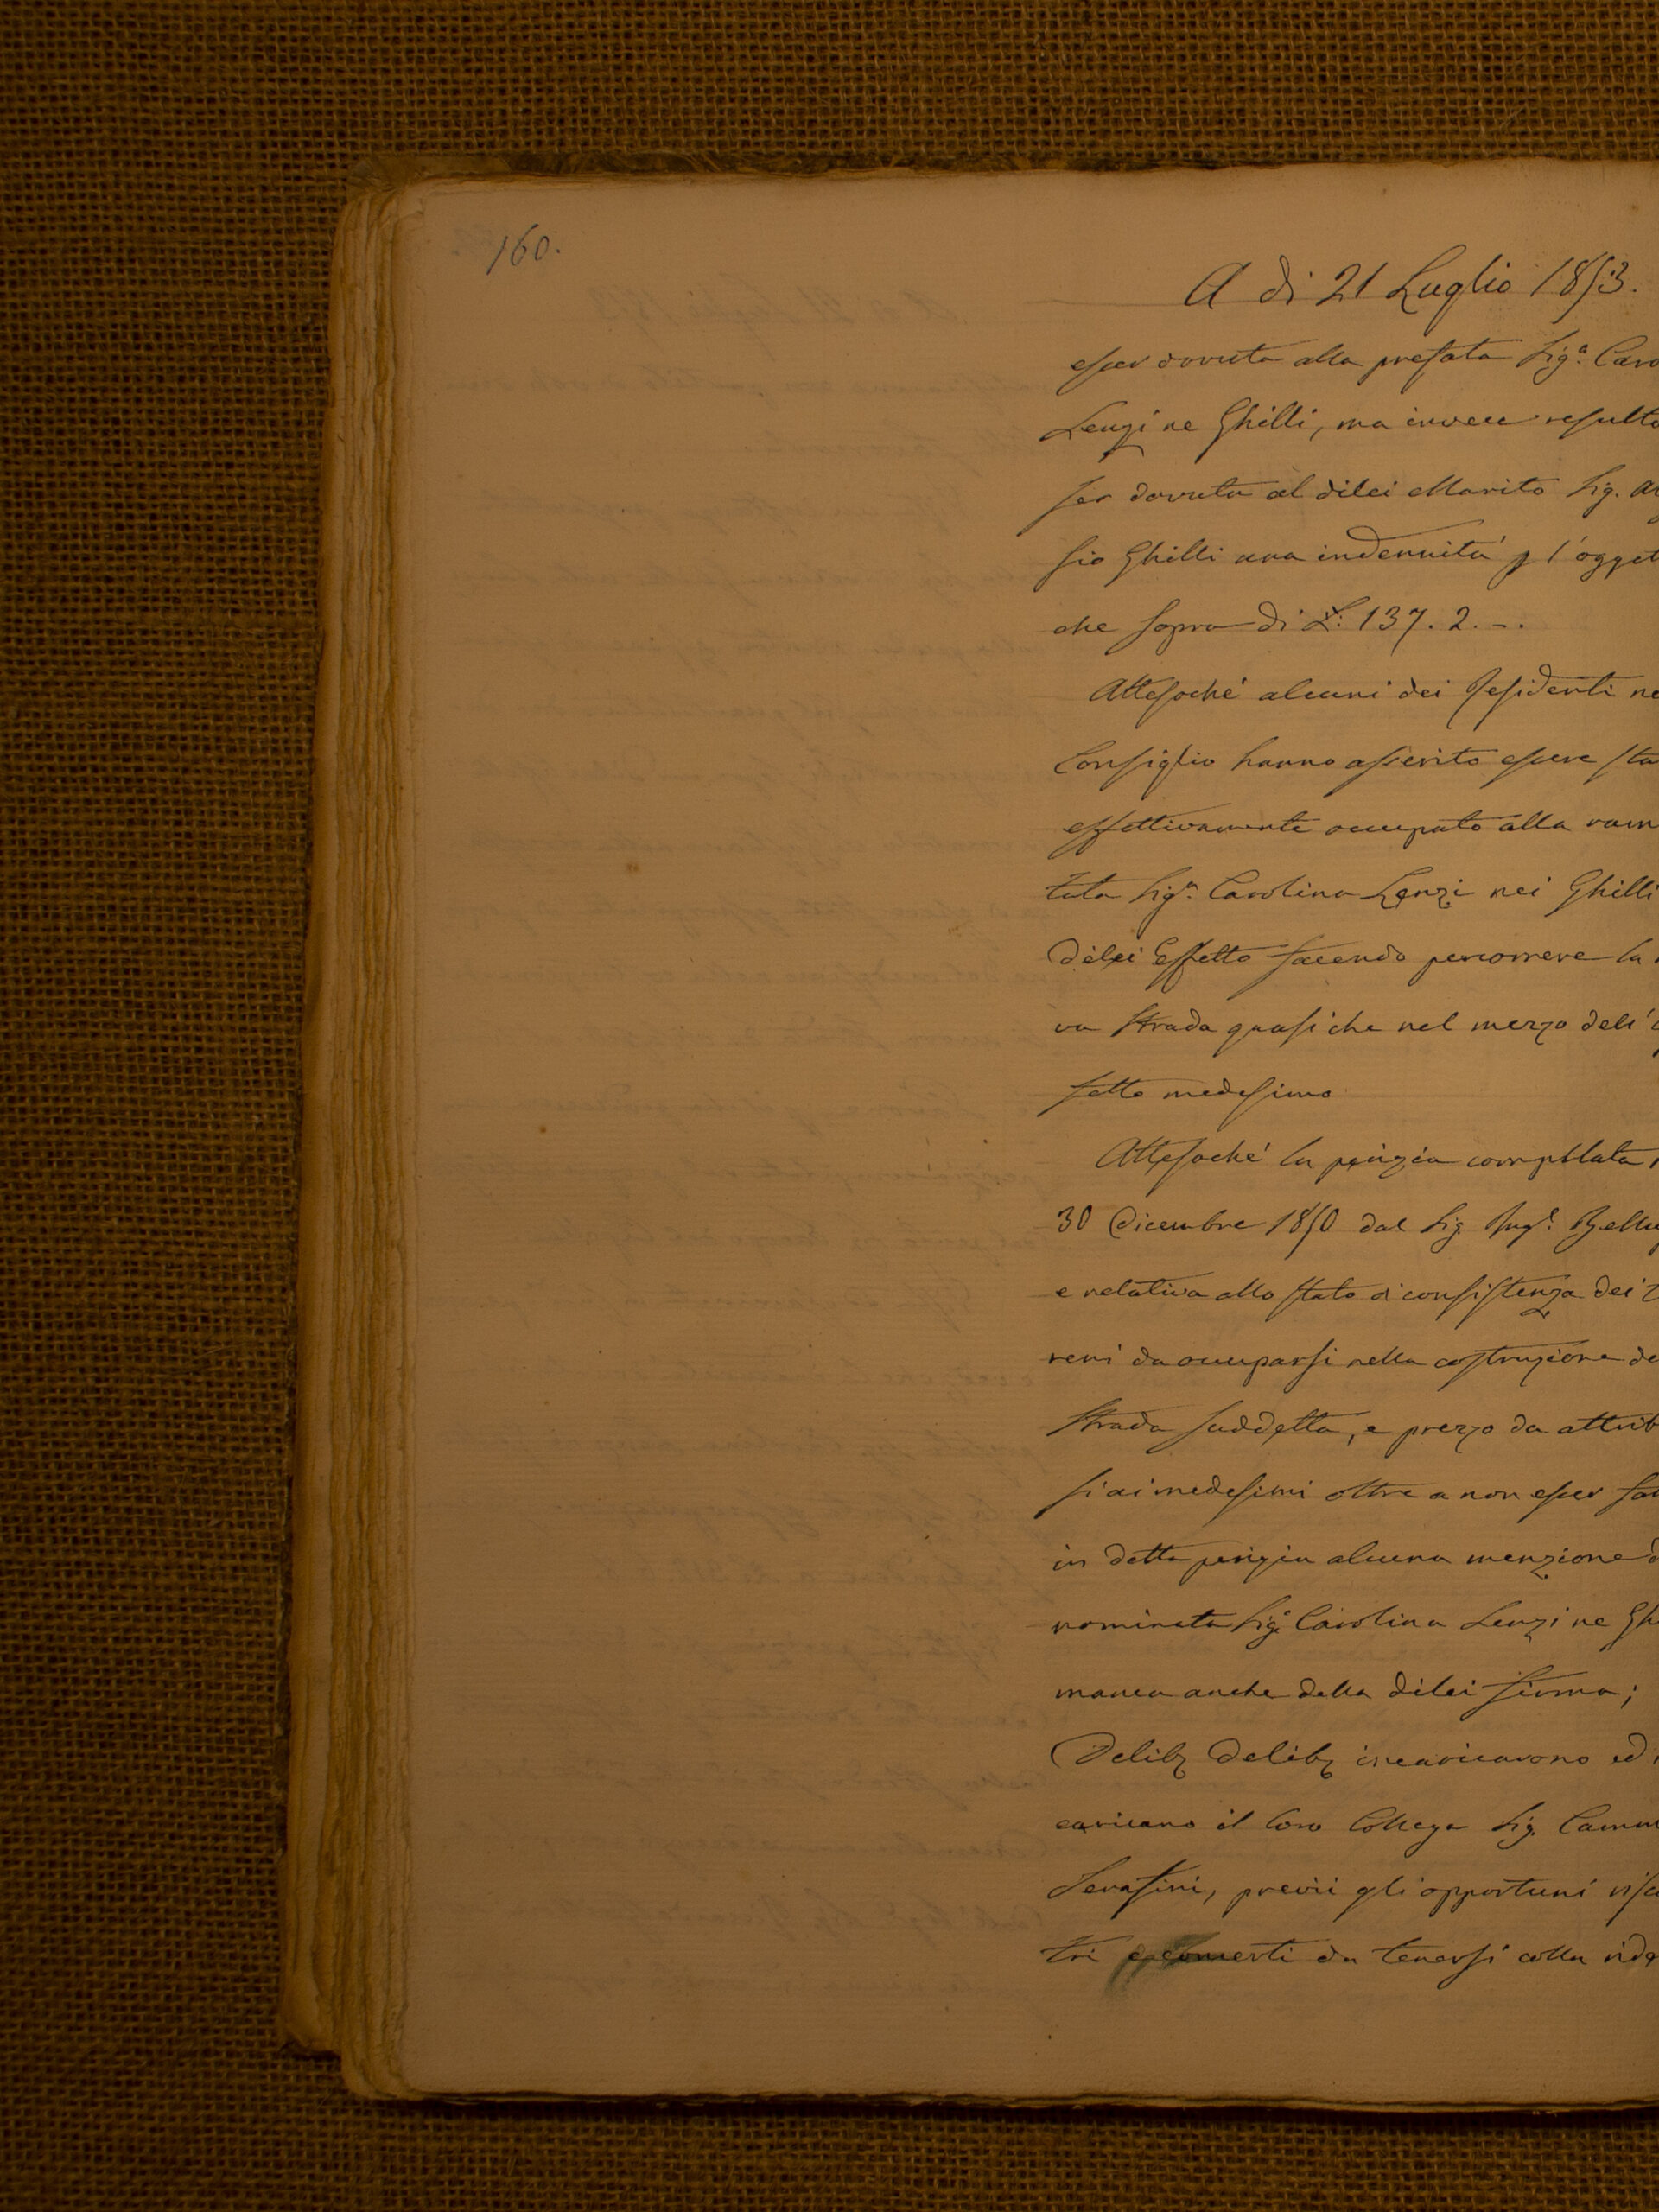 160.
A dì 21 Luglio 1853.
esser dovuta alla prefata Sig.ª Caro
Lenzi ne Ghilli, ma invece resulta
ser dovuta al dilei Marito Sig.
sio Ghilli una indennità p l'ogget
che sopra di £: 137. 2. –.
Attesoché alcuni dei Residenti ne
Consiglio hanno asserito essere sta
effettivamente occupato alla ram
tata Sig.ª Carolina Lenzi nei Ghilli
dilei Effetto facendo percorrere la
va Strada quasiche nel mezzo dell'
fetto medesimo
Attesoché la perizia compilata
30 Dicembre 1850 dal Sig. Ing.e Bellu
e relativa allo stato di consistenza dei
reni da occuparsi nella costruzione de
Strada suddetta, e prezzo da attrib
si ai medesimi oltre a non esser fat
in detta perizia alcuna menzione d
nominata Sig.ª Carolina Lenzi ne Gh
manca anche della dilei firma;
Delib. Delib. incaricarono ed
caricano il loro Collega Sig. Camm
Serafini, previi gli opportuni risc
tri e da tenersi colla rida